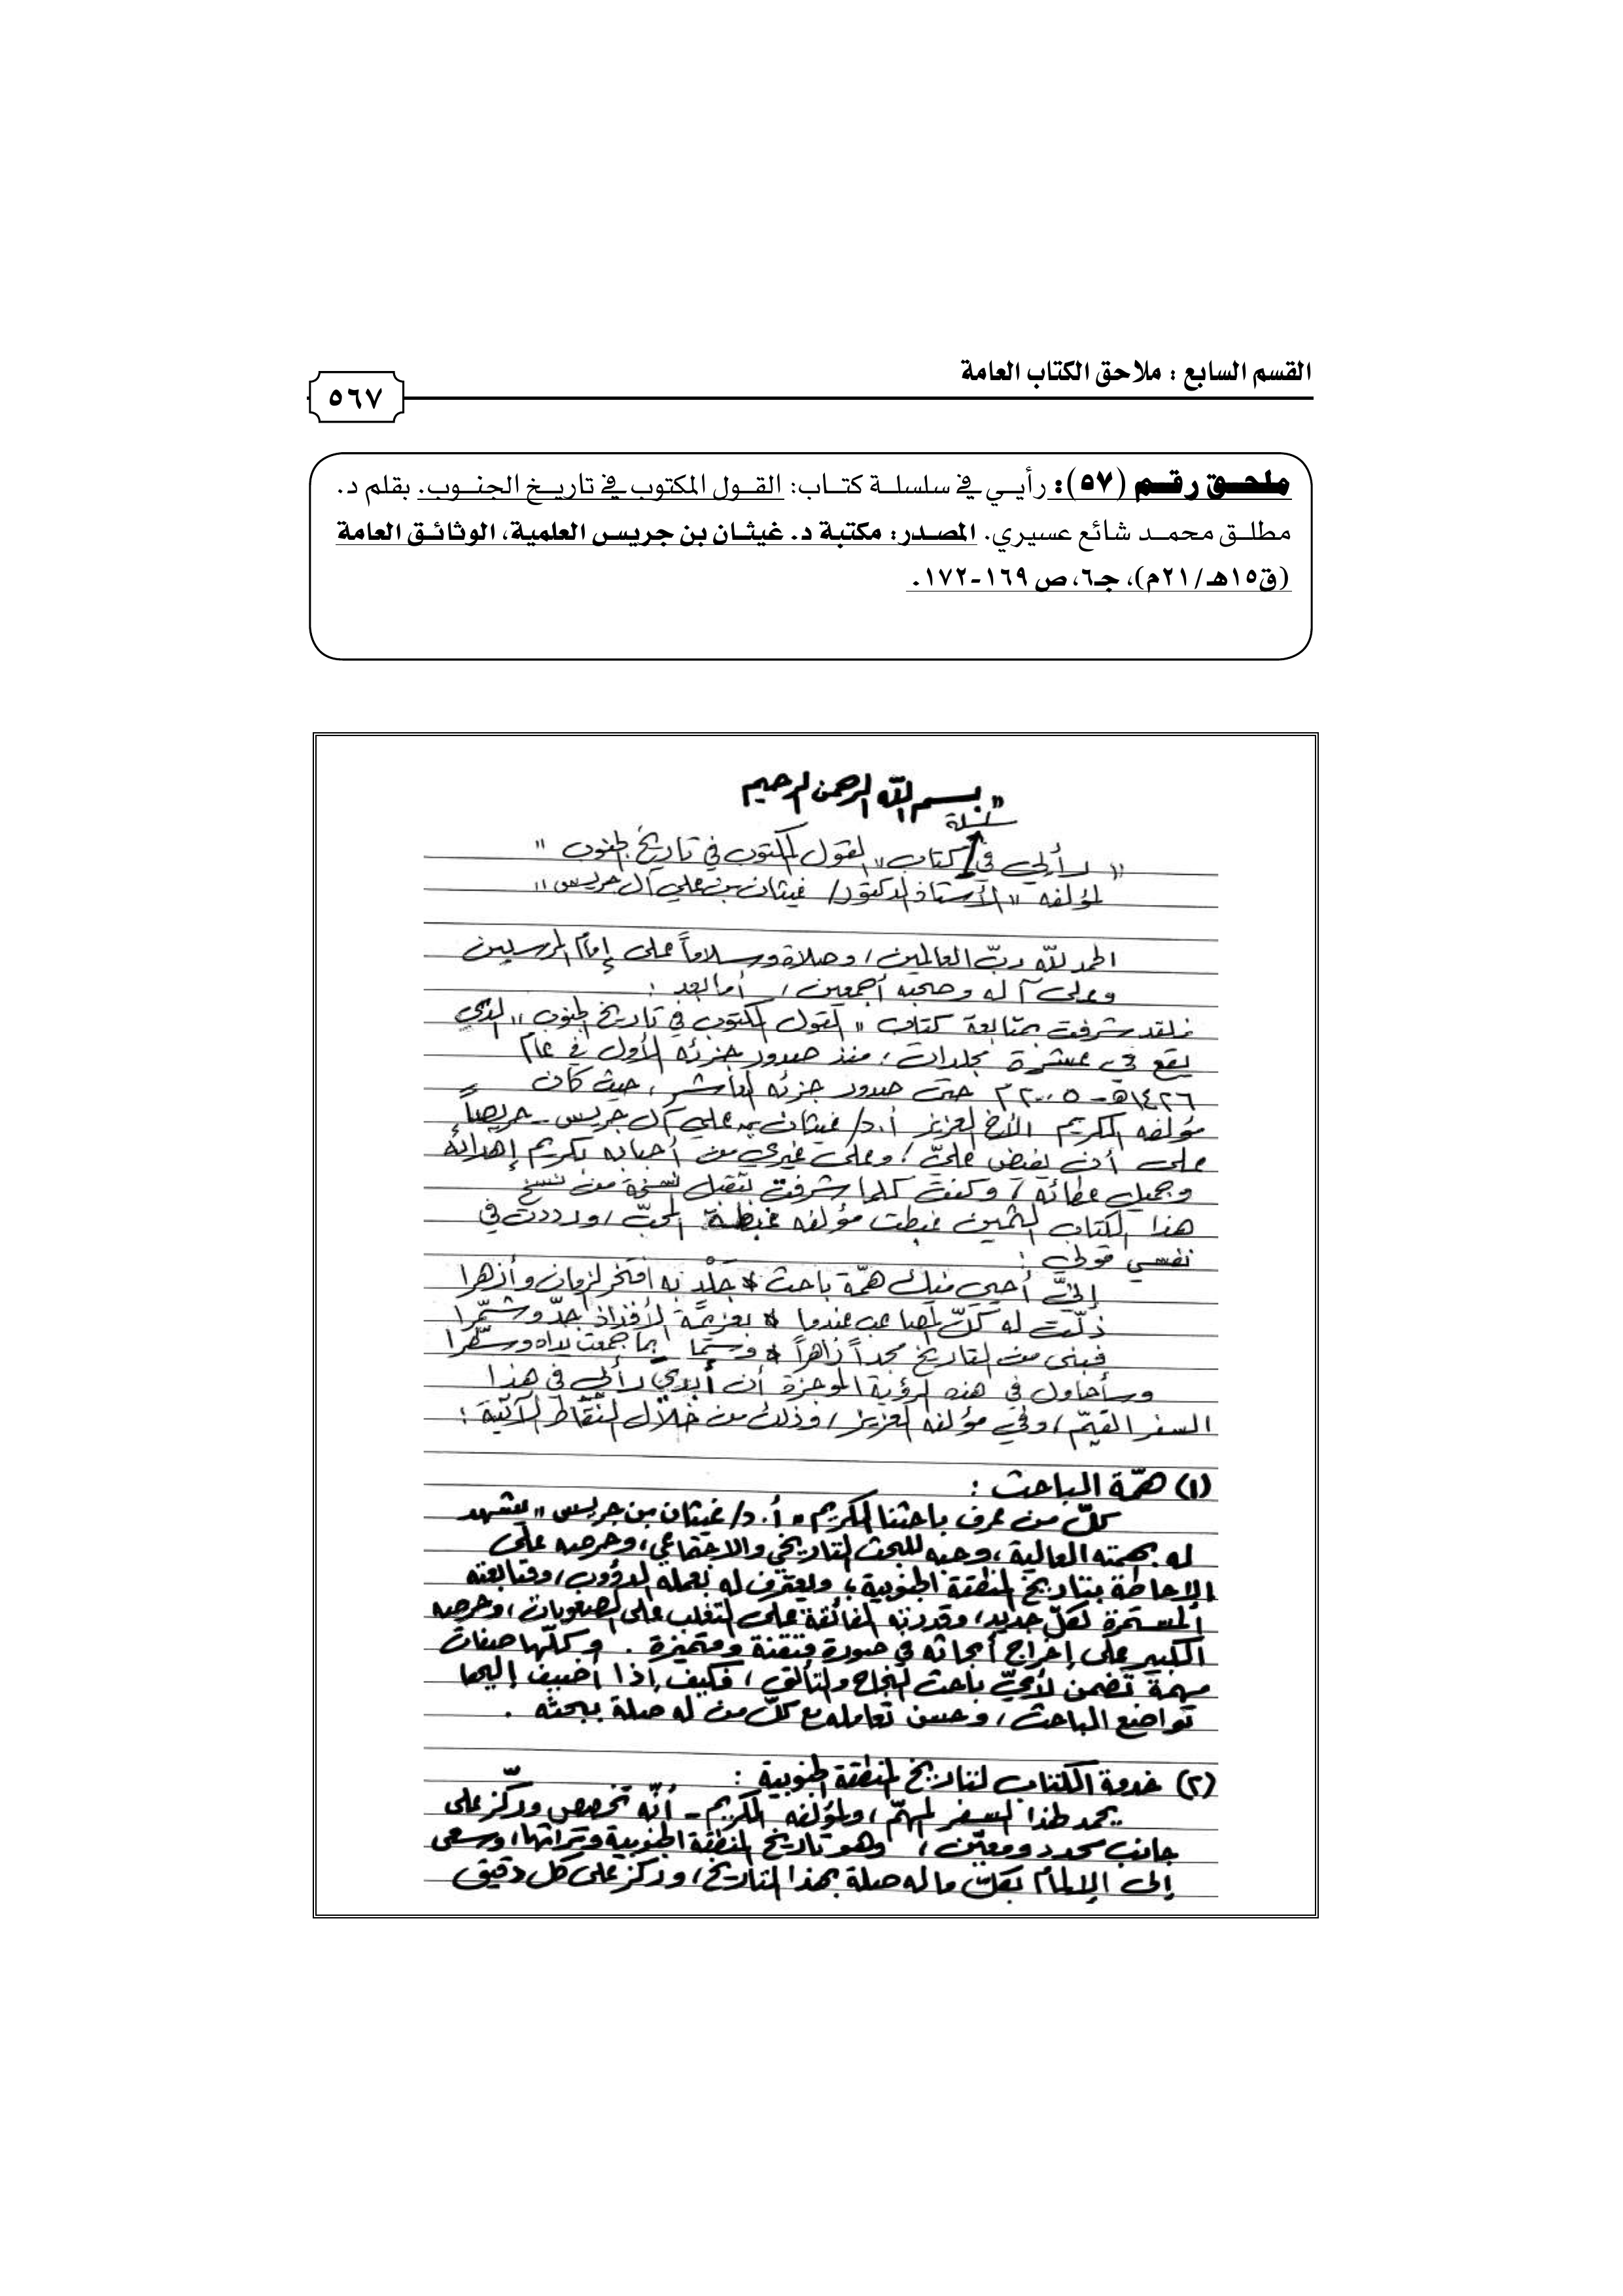 القسم السابع : ملاحق الكتاب العامة
٥٦٧
ملحق رقم (٥٧): رأيي في سلسلة كتاب: القول المكتوب في تاريخ الجنوب. بقلم د.
مطلق محمد شائع عسيري. المصدر: مكتبة د. غيثان بن جريس العلمية، الوثائق العامة
(ق١٥هـ/٢١م)، جـ٦، ص ١٦٩-١٧٢.
"بسم الله الرحمن الرحيم
سلسلة
" رأيي في كتاب " القول المكتوب في تاريخ الجنوب "
لمؤلفه " الأستاذ الدكتور/ غيثان بن علي آل جريس "
الحمد لله ربّ العالمين، وصلاة وسلاماً على إمام المرسلين
وعلى آله وصحبه أجمعين، أما بعد :
فلقد شرفت بمتابعة كتاب " القول المكتوب في تاريخ الجنوب " الذي
يقع في عشرة مجلدات، منذ صدور جزئه الأول في عام
١٤٢٦هـ - ٢٠٠٥م حتى صدور جزئه العاشر، حيث كان
مؤلفه الكريم الأخ العزيز أ.د/ غيثان بن علي آل جريس - حريصاً
على أن يفيض عليّ، وعلى غيري من أحبابه بكريم إهدائه
وجميل عطائه، وكنت كلما شرفت بتقبل نسخة من نسخ
هذا الكتاب الثمين غبطت مؤلفه غبطة المحبّ، ورددت في
نفسي قولي :
إنّي أحيي منك همّة باحث * جَلْدٍ به افتخر الزمان وأزهرا
ذلّت له كلّ المصاعب عندما * بعزيمة الأفذاذ جدّ وشمّرا
فبنى من التاريخ مجداً زاهراً * وسما بما جمعت يداه وسطّرا
وسأحاول في هذه الرؤية الموجزة أن أبدي رأيي في هذا
السفر القيّم، وفي مؤلفه العزيز، وذلك من خلال النّقاط الآتية :
(١) همّة الباحث :
كلّ من عرف باحثنا الكريم " أ.د/ غيثان بن جريس " يشهد
له بهمته العالية، وحبه للبحث التاريخي والاجتماعي، وحرصه على
الإحاطة بتاريخ المنطقة الجنوبية، ويعترف له بعمله الدؤوب، ومتابعته
المستمرة لكلّ جديد، وقدرته الفائقة على التغلب على الصعوبات، وحرصه
الكبير على إخراج أبحاثه في صورة متقنة ومتميزة . وكلّها صفات
مهمة تضمن لأيّ باحث النجاح والتألق، فكيف إذا أضيف إليها
تواضع الباحث، وحسن تعامله مع كلّ من له صلة ببحثه .
(٢) خدمة الكتاب لتاريخ المنطقة الجنوبية :
يحمد لهذا السفر المهمّ، ولمؤلفه الكريم - أنّه تخصص وركّز على
جانب محدد ومعيّن، وهو تاريخ المنطقة الجنوبية وتراثها، وسعى
إلى الإلمام بكلّ ما له صلة بهذا التاريخ، وركز على كل دقيق